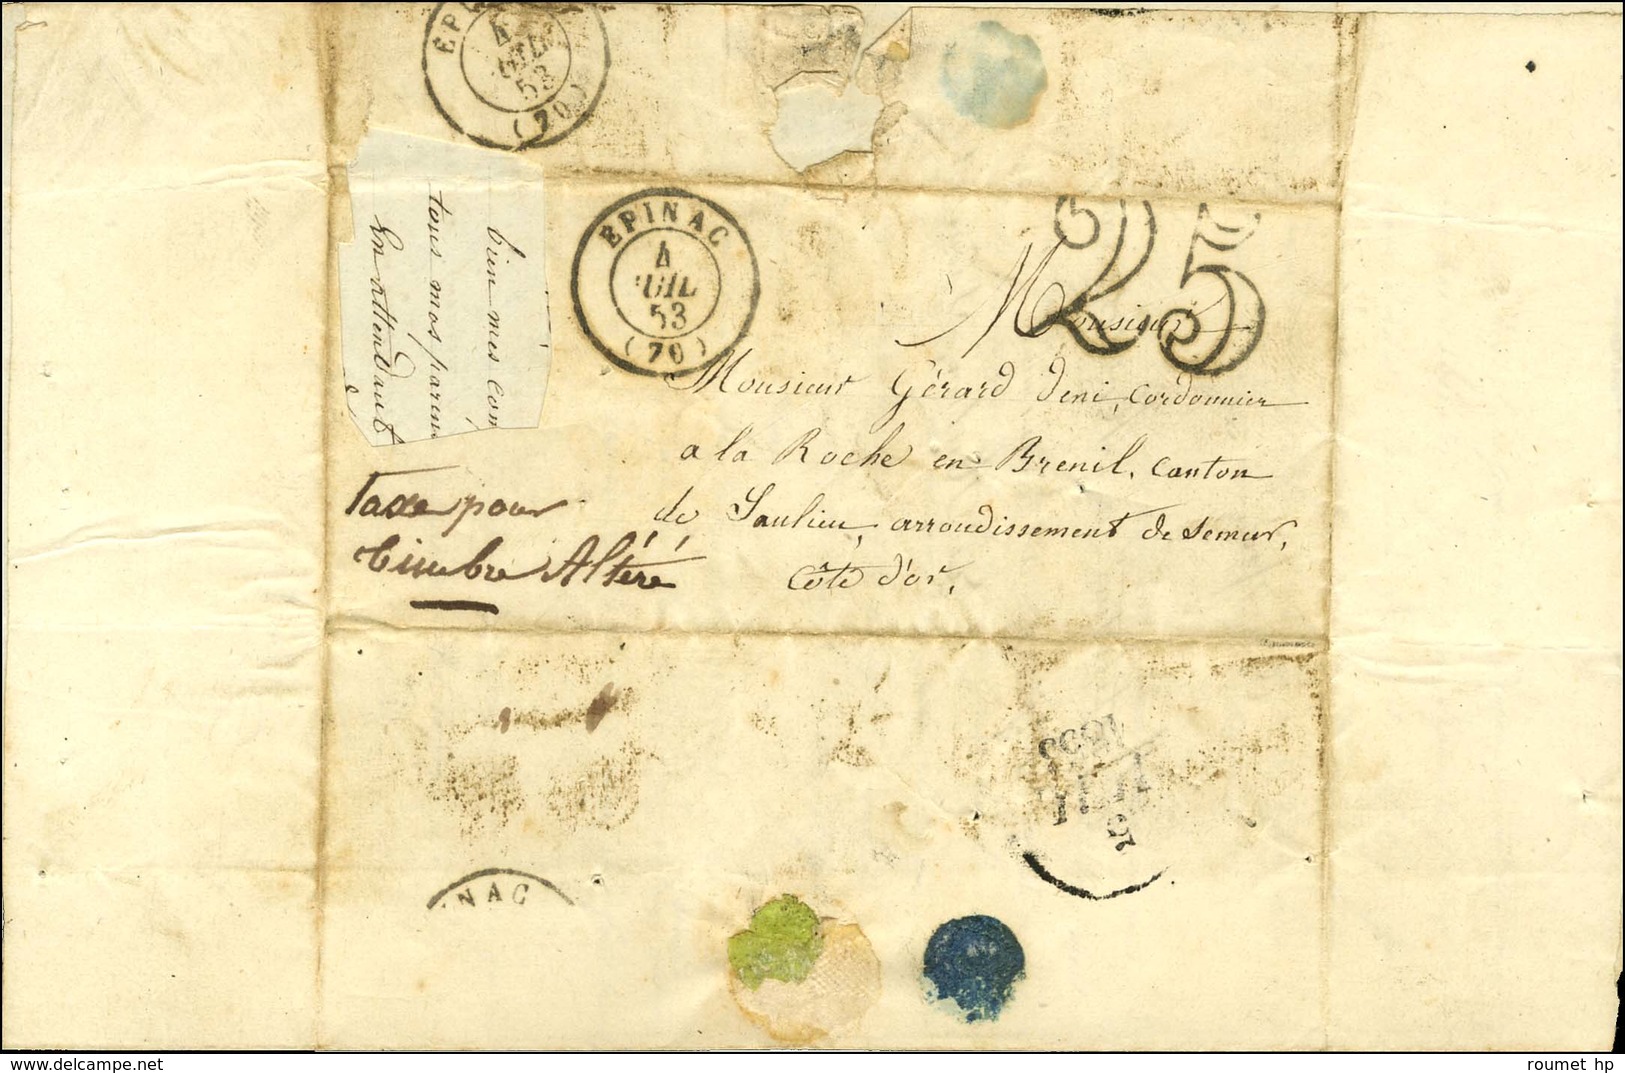 ÉPI
4
JUIL
53
(70)
bien mes com
tous mos paren
En attendant
ÉPINAC
4
JUIL
53
(70)
25
Monsieur
Monsieur Gérard Deni, Cordonnier
a la Roche en Brenil, Canton
de Saulieu, arrondissement de Semur,
Côte d'or,
Taxe pour
timbre Altéré
INAC
roumet hp